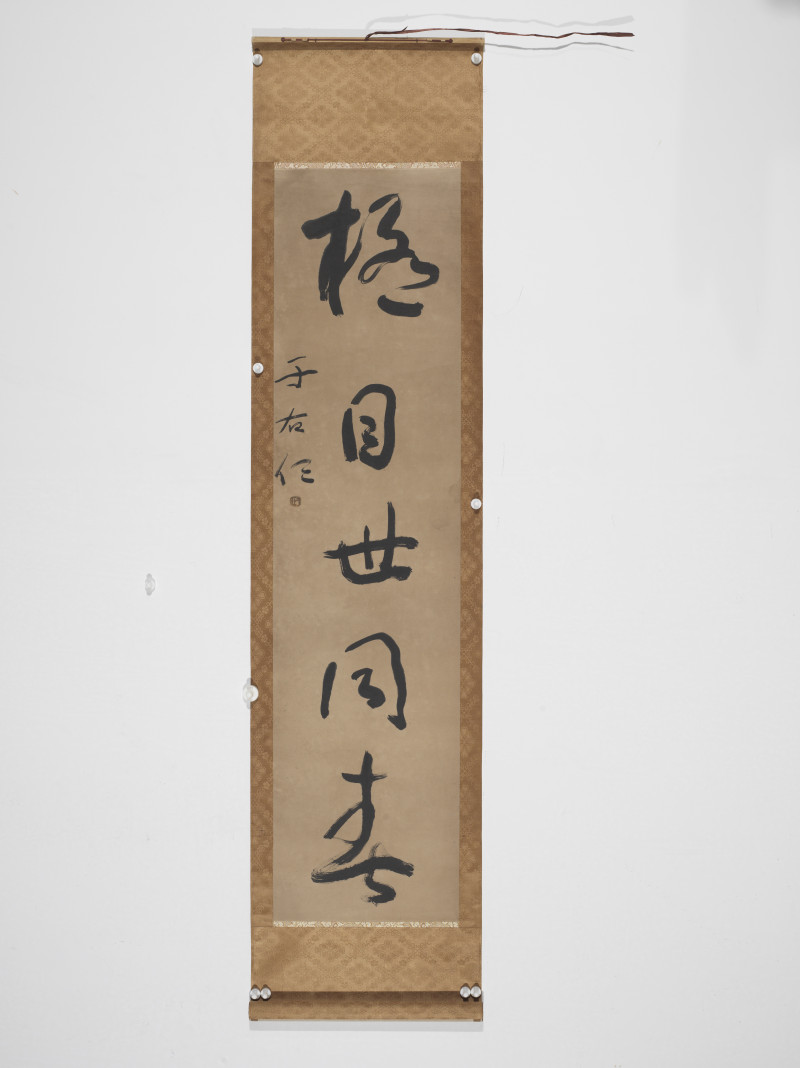 極目世同春
于右任